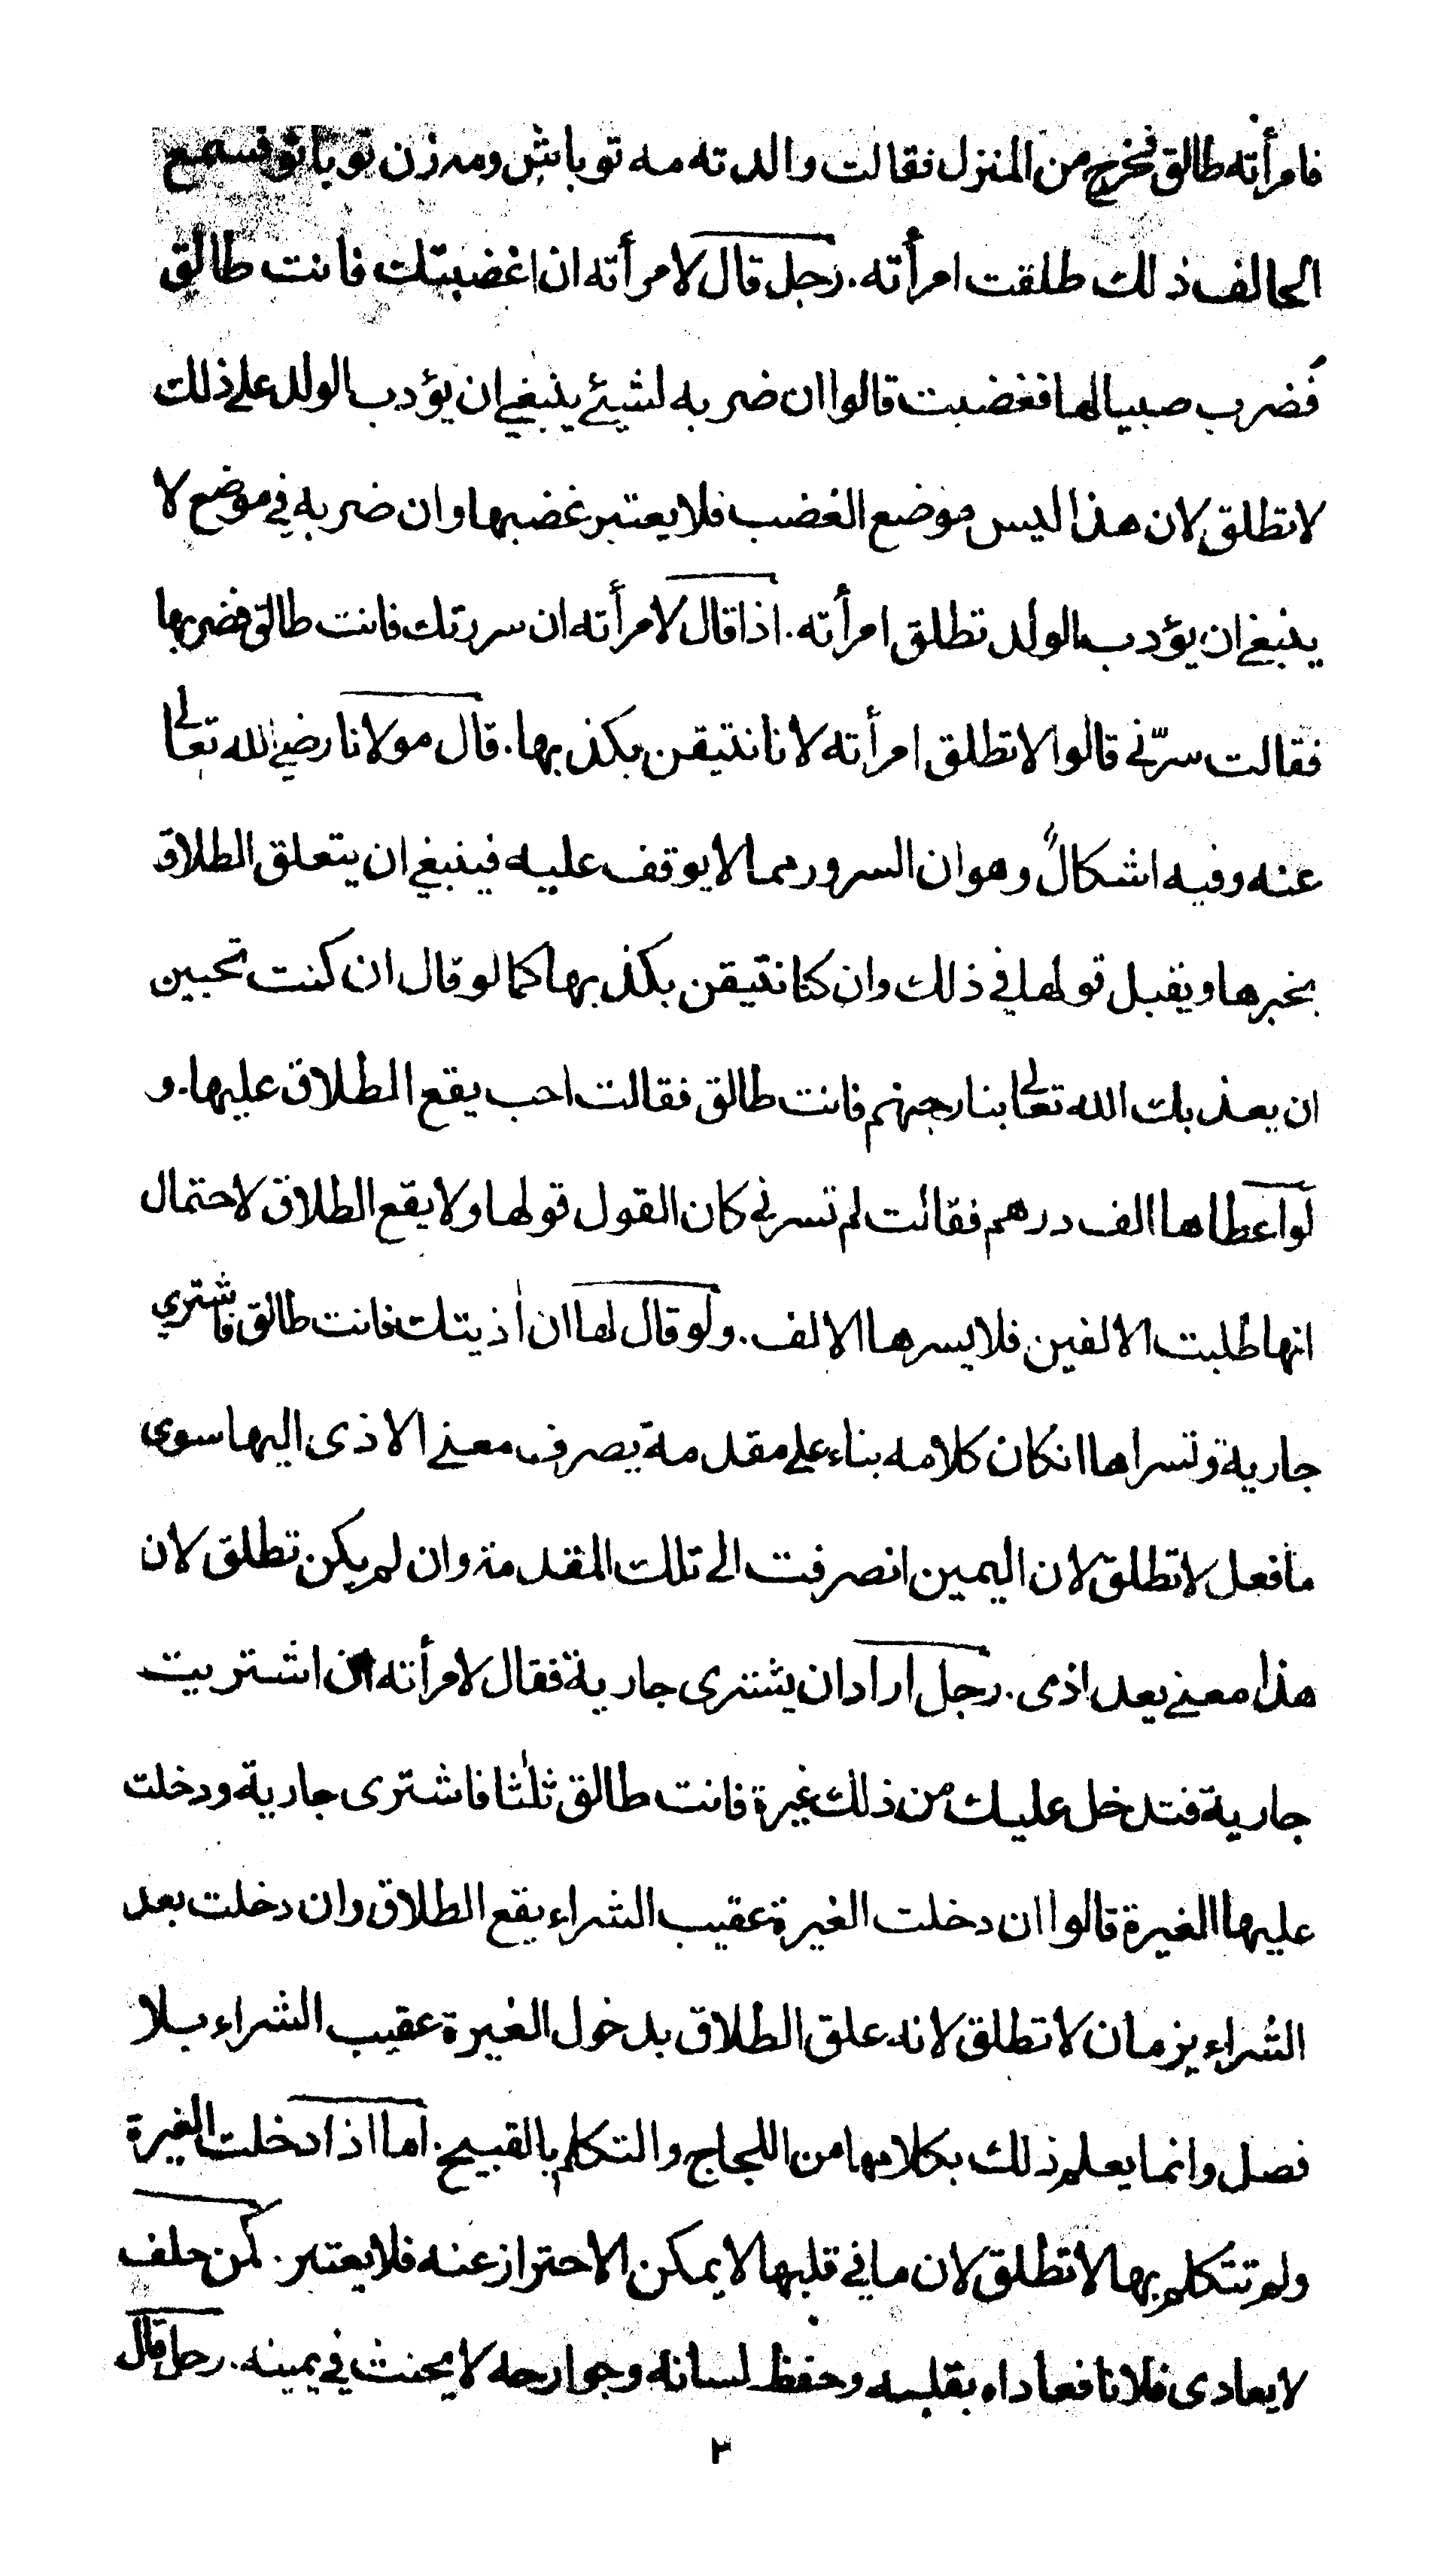 فامرأته طالق فخرج من المنزل فقالت والدته مه تو باش ومه زن تو با تو فسمع
الحالف ذلك طلقت امرأته. رجل قال لامرأته ان اغضبتك فانت طالق
فضرب صبيا لها فغضبت قالوا ان ضربه لشيئ ينبغي ان يؤدب الولد على ذلك
لا تطلق لان هذا ليس موضع الغضب فلا يعتبر غضبها وان ضربه في موضع لا
ينبغي ان يؤدب الولد تطلق امرأته. اذا قال لامرأته ان سررتك فانت طالق فضربها
فقالت سرّني قالوا لا تطلق امرأته لانا نتيقن بكذبها. قال مولانا رضي الله تعالى
عنه وفيه اشكالٌ وهو ان السرور مما لا يوقف عليه فينبغي ان يتعلق الطلاق
بخبرها ويقبل قولها في ذلك وان كنا نتيقن بكذبها كما لو قال ان كنت تحبين
ان يعذبك الله تعالى بنار جهنم فانت طالق فقالت احب يقع الطلاق عليها. و
لو اعطاها الف درهم فقالت لم تسرني كان القول قولها ولا يقع الطلاق لاحتمال
انها طلبت الالفين فلا يسرها الالف. ولو قال لها ان اذيتك فانت طالق فاشتري
جارية وتسراها انكان كلامه بناء على مقدمة يصرف معنى الاذى اليها سوى
ما فعل لا تطلق لان اليمين انصرفت الى تلك المقدمة وان لم يكن تطلق لان
هذا معنى يعد اذى. رجل اراد ان يشترى جارية فقال لامرأته ان اشتريت
جارية فتدخل عليك من ذلك غيرة فانت طالق ثلثا فاشترى جارية ودخلت
عليها الغيرة قالوا ان دخلت الغيرة عقيب الشراء يقع الطلاق وان دخلت بعد
الشراء بزمان لا تطلق لانه علق الطلاق بدخول الغيرة عقيب الشراء بلا
فصل وانما يعلم ذلك بكلامها من اللجاج والتكلم بالقبيح. اما اذا دخلت الغيرة
ولم تتكلم بها لا تطلق لان ما في قلبها لا يمكن الاحتراز عنه فلا يعتبر. كمن حلف
لا يعادى فلانا فعاداه بقلبه وحفظ لسانه وجوارحه لا يحنث في يمينه. رجل قال
٢